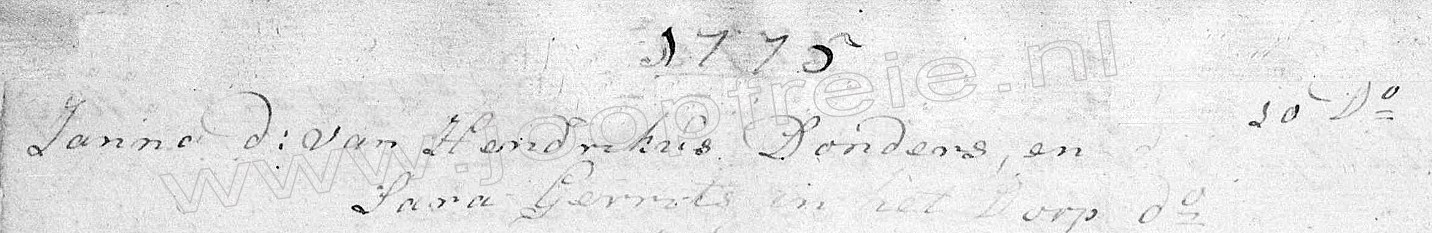 1775
Janna d: van Hendrikus Donders, en 10 Do
Sara Gerrits in het Dorp do
www.jooptreie.nl